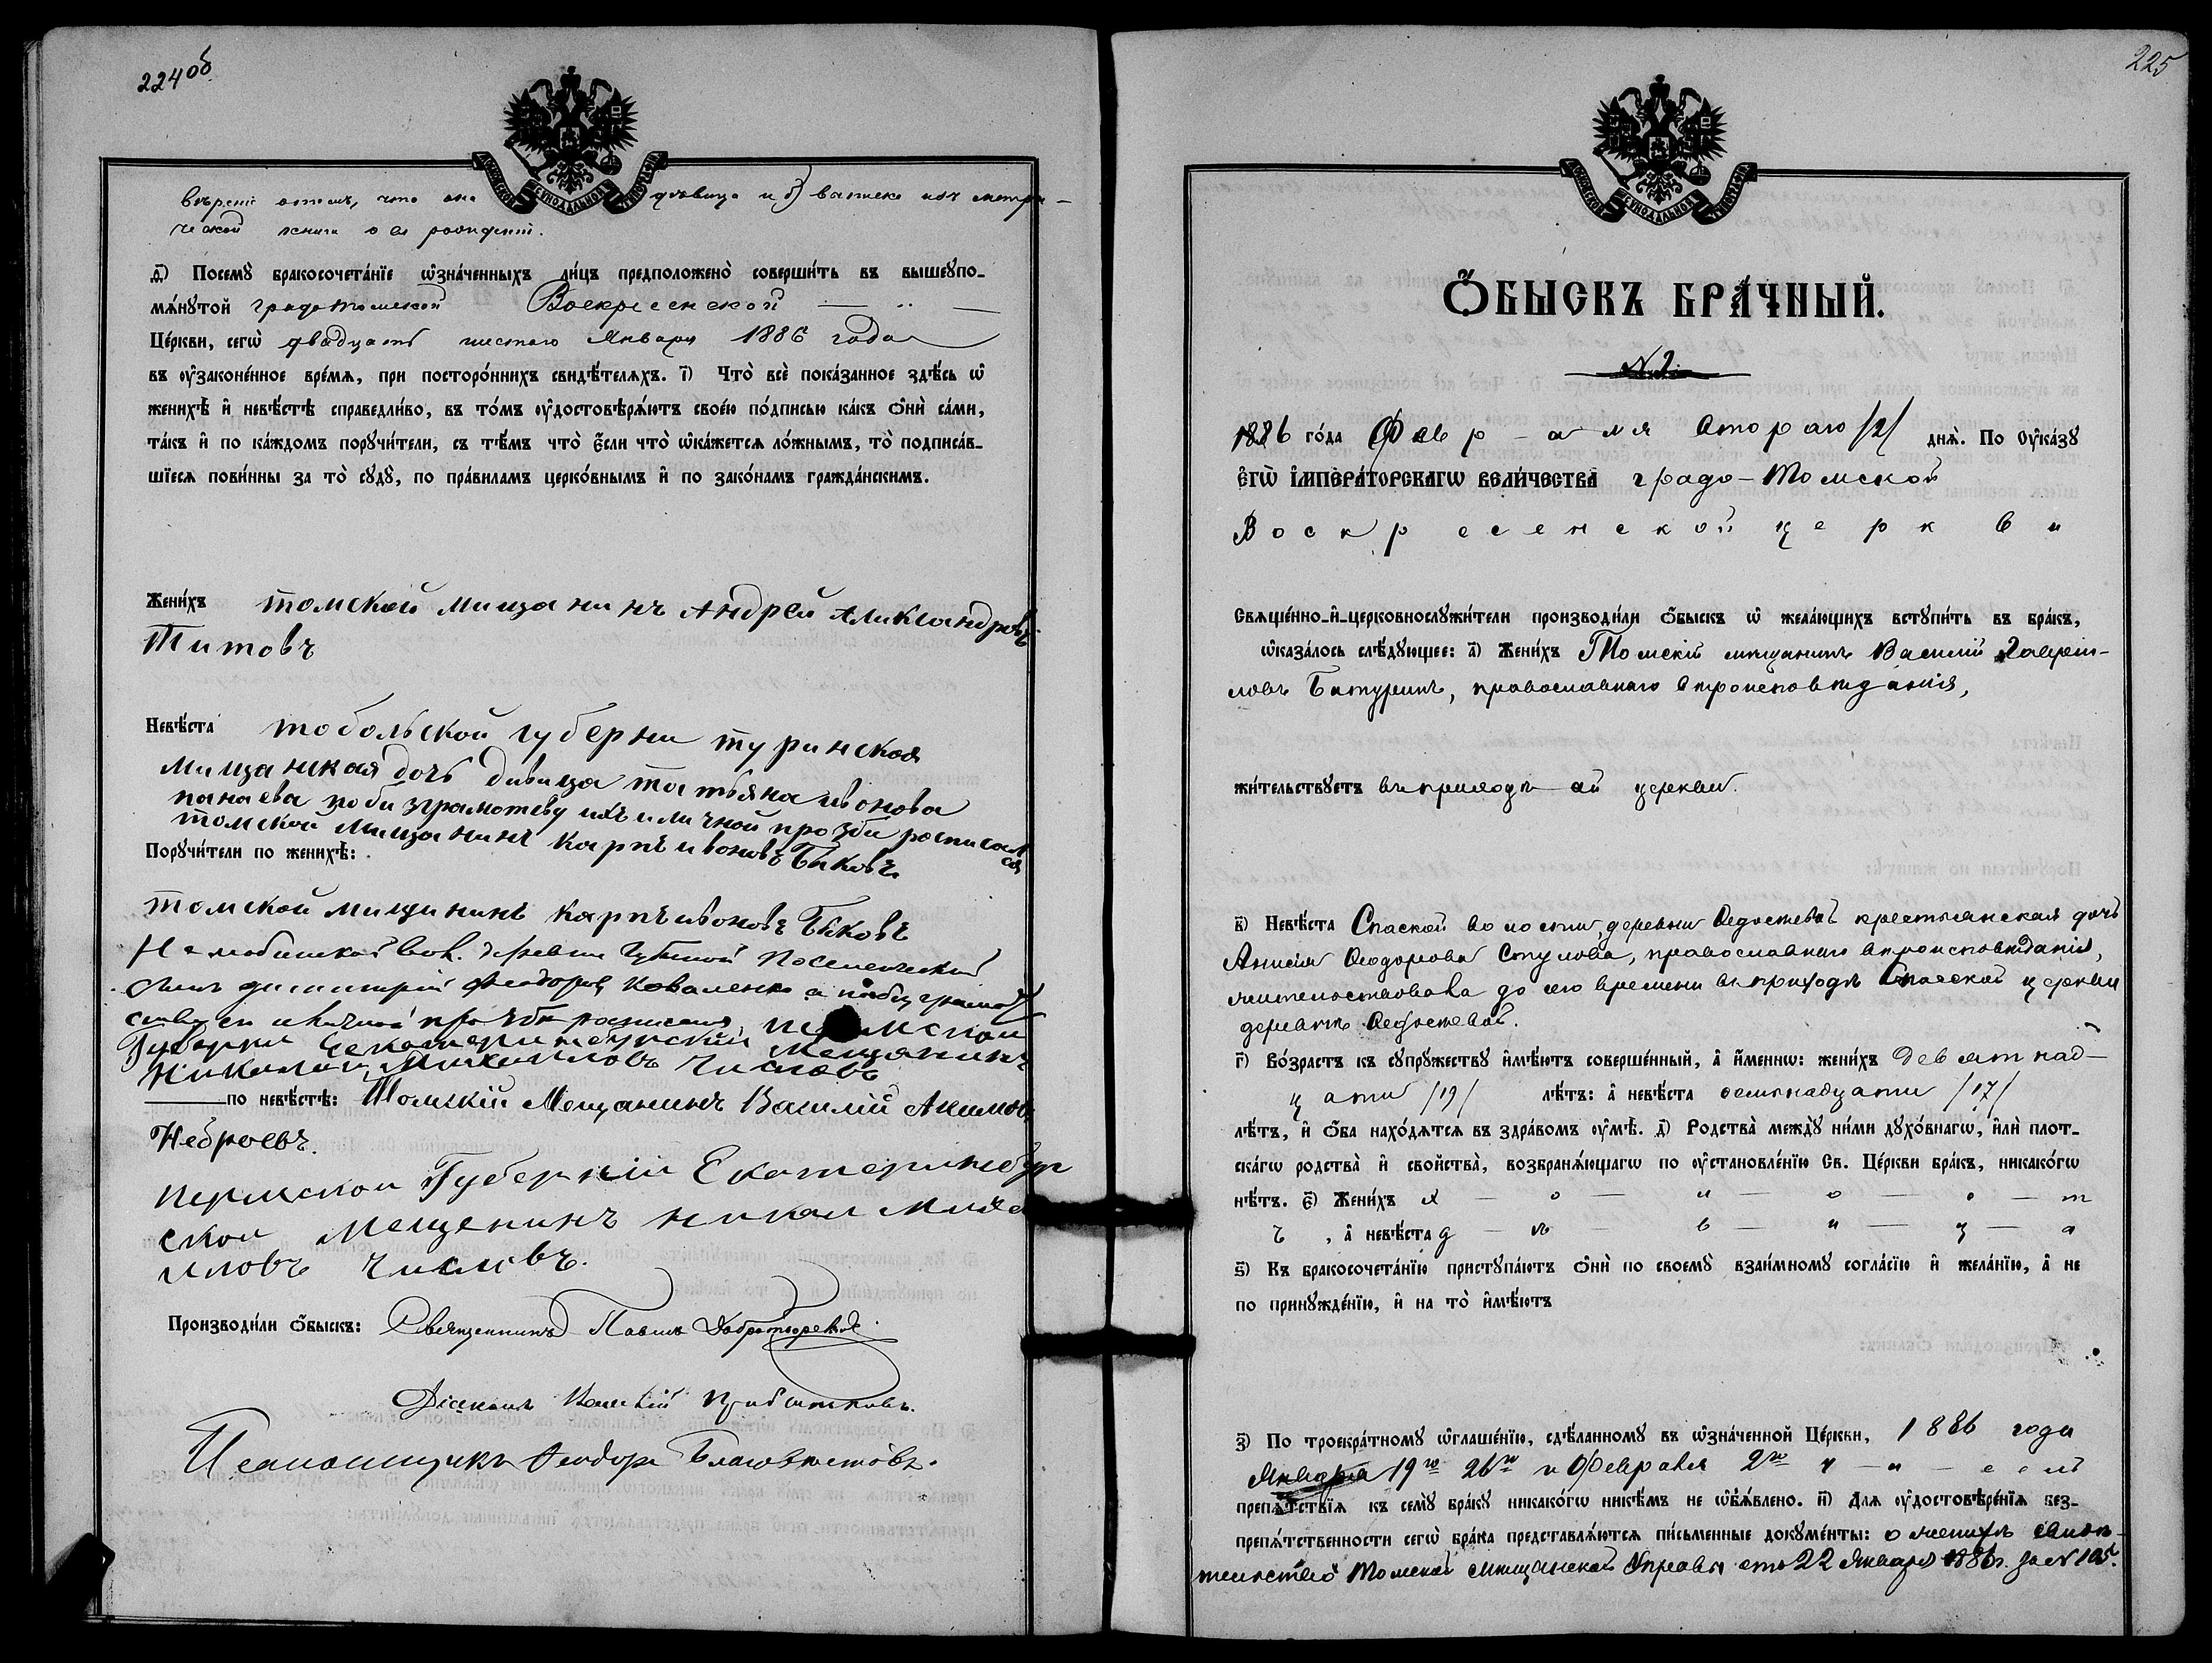 224 об.
что она дѣвица и б) выписка изъ метри-
ческой книги о ея рожденіи.
д҃і) Посемꙋ̀ бракосочета́нїе ѡ҆зна́ченныхъ ли́цъ предположено̀ соверши́ть въ вышеꙋпо-
мѧ́нꙋтой градо-Томской Воскресенской
Це́ркви, сегѡ̀ двадцать шестаго Января 1886 года
въ ᲂу҆законе́нное вре́мѧ, при посторо́ннихъ свидѣ́телѧхъ. і҃) Что̀ всѐ пока́занное здѣ́сь ѡ҆
женихѣ̀ и҆ невѣ́стѣ справедли́во, въ то́мъ ᲂу҆достовѣрѧ́ютъ свое́ю по́дписью ка́къ ѻ҆нѝ са́ми,
та́къ и҆ по ка́ждомъ порꙋчи́тели, съ тѣ́мъ что̀ є҆́сли что̀ ѡ҆ка́жетсѧ ло́жнымъ, то̀ подписа́в-
шїесѧ пови́нны за то̀ сꙋдꙋ̀, по пра́виламъ церко́внымъ и҆ по зако́намъ гражда́нскимъ.
Жени́хъ томской мищанинъ Андрей Аликсандровъ
Титовъ
Невѣ́ста тобольской губерни туринская
мищанская дочь дивица татьяна ивонова
панаева
томской мищанинъ карпъ ивоновъ Быковъ
Порꙋчи́тели по женихѣ̀:
томской мищининъ карпъ ивоновъ Быковъ
Поселенческий
сынъ димитрій Феодоровъ Коваленко
Пермской
Губерни Екатеринбургскій Мещанинъ
Николай Михаиловъ Числовъ
по невѣ́стѣ: Томскій Мещанинъ Василій Акимовъ
Неброевъ.
Пермской Губерніи Екатеринебур
ской мещенинъ николай Миха
иловъ Числовъ.
Производи́ли ѻ҆́быскъ: Священникъ Павелъ Добротворскій.
Діаконъ
Псаломщикъ Феодоръ Благовѣстовъ.
225
Ѻ҆́БЫСКЪ БРА́ЧНЫЙ.
№ 2
1886 го́да Февр-аля второго /2/ днѧ̀. По ᲂу҆ка́зꙋ
є҆гѡ̀ і҆мпера́торскагѡ вели́чества градо-Томской
Воскресенской церкви
Свѧще́нно-и҆-церковнослꙋжи́тели производи́ли ѻ҆́быскъ ѡ҆ жела́ющихъ встꙋпи́ть въ бра́къ,
ѡ҆каза́лось слѣ́дꙋющее: а҃) Жени́хъ Томскій мѣщанинъ Василій Гаврии-
ловъ Батуринъ, православнаго вѣроисповѣданія,
жи́тельствꙋетъ въ приходѣ сей церкви.
в҃) Невѣ́ста Спаской волости, деревни Федосѣевой крестьянская дочь
Анисія Феодорова Стулова, православнаго вѣроисповѣданія,
жительствовала до сего времени въ приходѣ Спасской церкви
деревнѣ Федосѣевой.
г҃) Во́зрастъ къ сꙋпрꙋжествꙋ и҆мѣ́ютъ соверше́нный, а҆ и҆́меннѡ: жени́хъ девятнад-
цати /19/ лѣ́тъ: а҆ невѣ́ста семьнадцати /17/
лѣ́тъ, и҆ ѻ҆́ба нахо́дѧтсѧ въ здра́вомъ ᲂу҆мѣ̀. д҃) Родства̀ междꙋ̀ ни́ми дꙋхо́внагѡ, и҆лѝ плот-
ска́гѡ родства̀ и҆ сво́йства̀, возбранѧ́ющагѡ по ᲂу҆становле́нїю Св. Це́ркви бра́къ, никако́гѡ
нѣ́тъ. є҃) Жени́хъ х — о — л — о — с — т
ъ, а҆ невѣ́ста д — ѣ — в — и — ц — а
ѕ҃) Къ бракосочета́нїю пристꙋпа́ютъ ѻ҆нѝ по своемꙋ̀ взаи́мномꙋ согла́сїю и҆ жела́нїю, а҆ не
по принꙋжде́нїю, и҆ на то̀ и҆мѣ́ютъ
з҃) По троекра́тномꙋ ѡ҆глаше́нїю, сдѣ́ланномꙋ въ ѡ҆зна́ченной Це́ркви, 1886 года
Января 19го 26го и Февраля 2го ч — и — селъ
препѧ́тствїѧ къ семꙋ̀ бра́кꙋ никако́гѡ нике́мъ не ѡ҆б̾ѧ́влено. и҃) Длѧ ᲂу҆достовѣре́нїѧ без-
препѧ́тственности сегѡ̀ бра́ка представлѧ́ютсѧ пи́сьменные докꙋме́нты: о женихѣ свидѣ-
тельство Томской мѣщанской Управы отъ 22 Января 1886 г. за № 105.